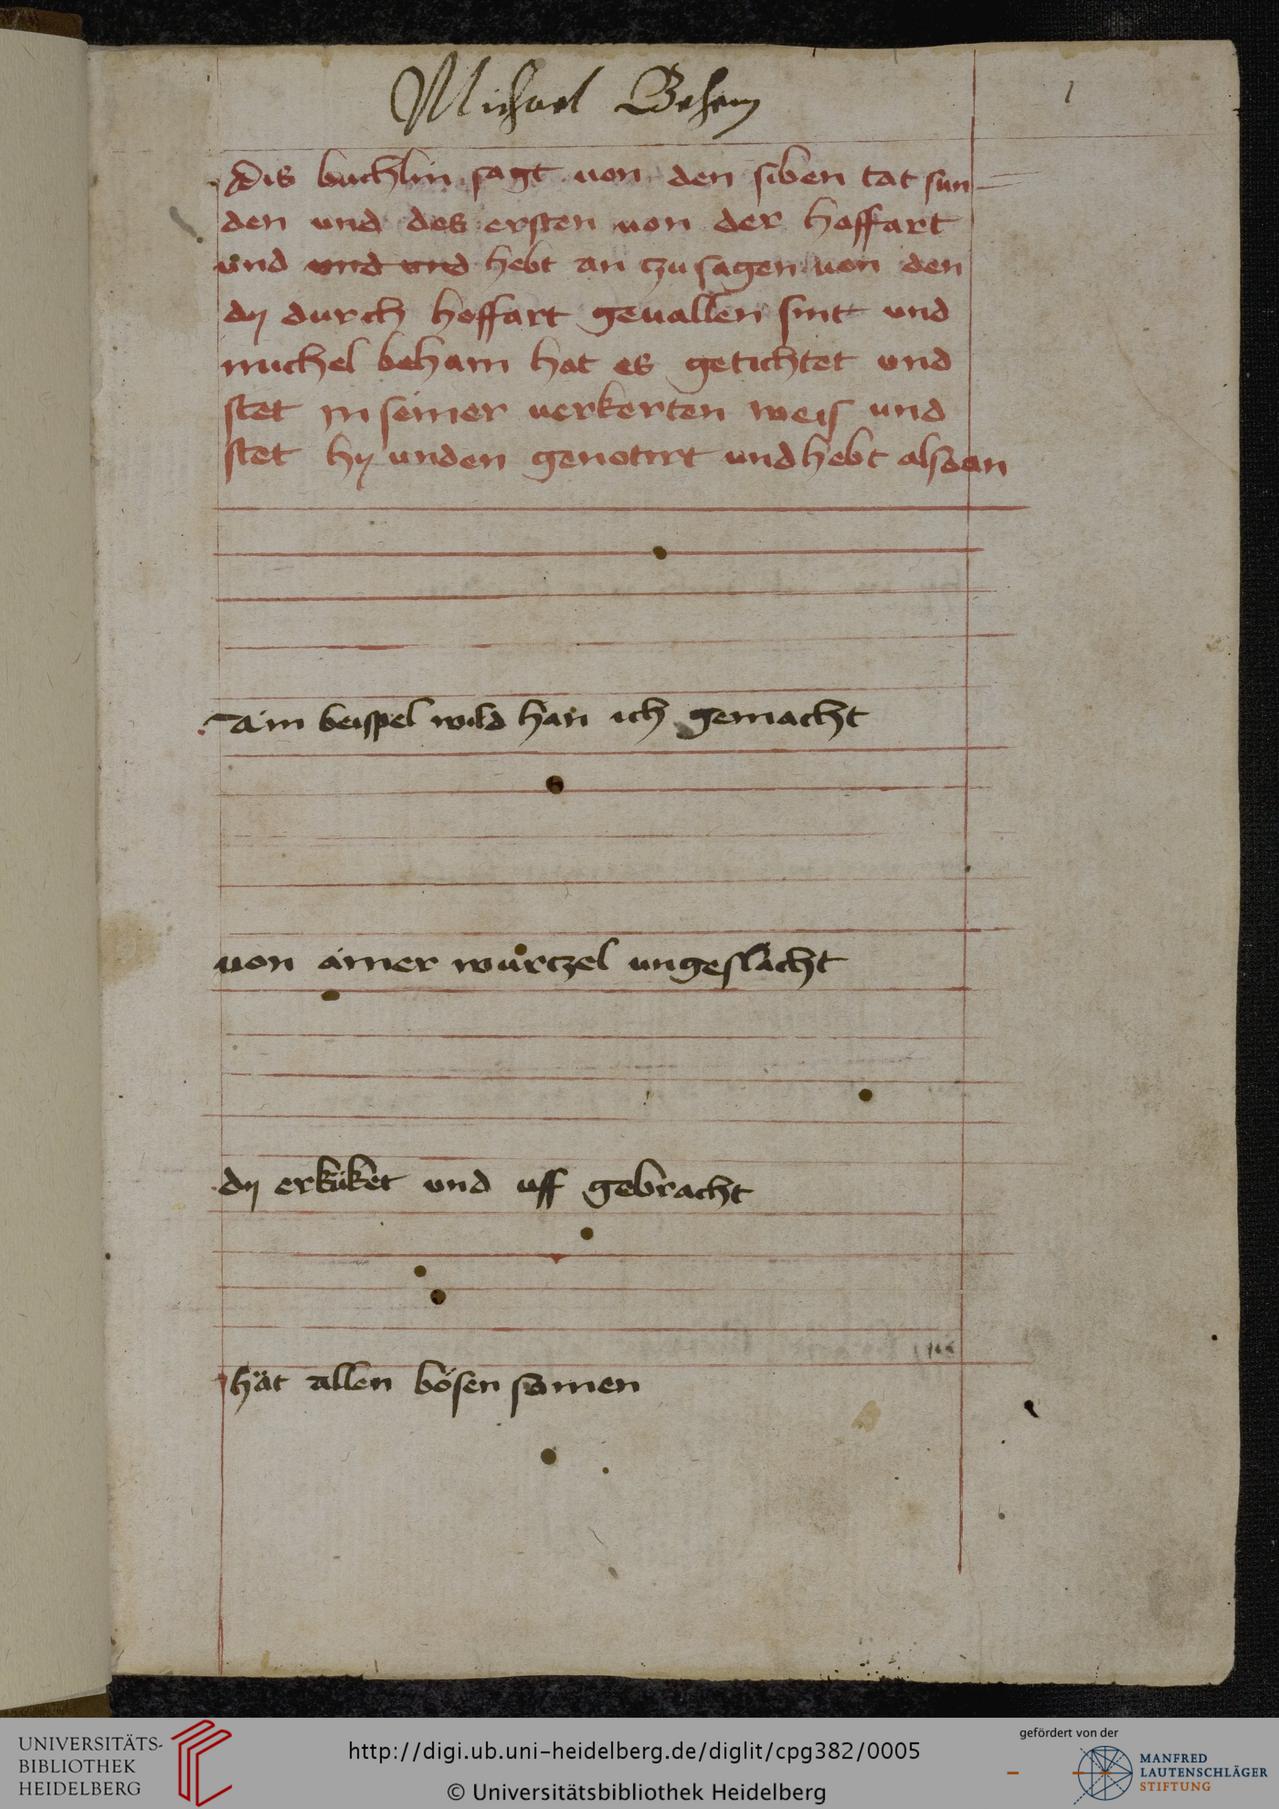 Michael Beham
1
Dis buchlin sagt von den siben tat sun
den und des ersten von der hoffart
und und und hebt an czu sagen von den
dy durch hoffart gevallen sint und
michel beham hat es getichtet und
stet in seiner verkerten weis und
stet hy unden genotirt und hebt also an
Aim beispel wild han ich gemacht
von ainer wurczel ungeslacht
dy erküket und uff gebracht
hät allen bösen samen
UNIVERSITÄTS-
BIBLIOTHEK
HEIDELBERG
http://digi.ub.uni-heidelberg.de/diglit/cpg382/0005
© Universitätsbibliothek Heidelberg
gefördert von der
MANFRED
LAUTENSCHLÄGER
STIFTUNG